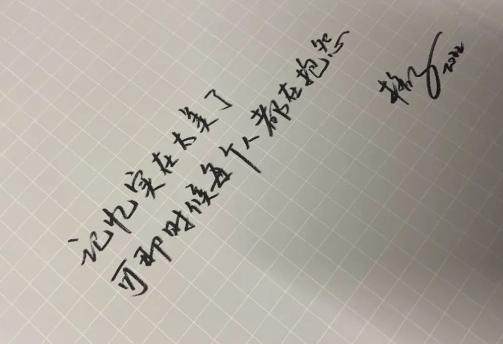 记忆实在太美了
可那时候每个人都在抱怨
韩
2022